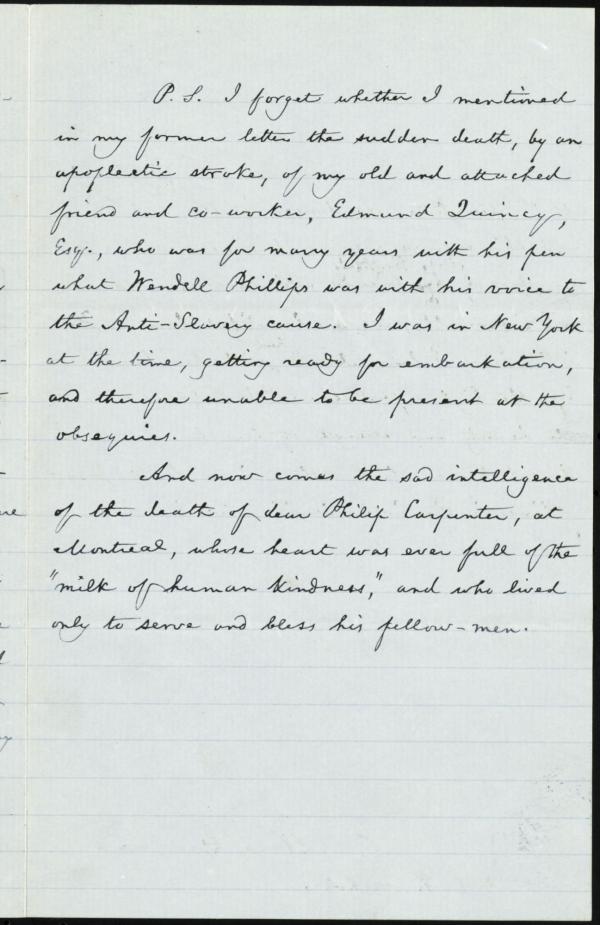 P. S. I forget whether I mentioned
in my former letter the sudden death, by an
apoplectic stroke, of my old and attached
friend and co-worker, Edmund Quincy,
Esq., who was for many years with his pen
what Wendell Phillips was with his voice to
the Anti-Slavery cause. I was in New York
at the time, getting ready for embarkation,
and therefore unable to be present at the
obsequies.
And now comes the sad intelligence
of the death of dear Philip Carpenter, at
Montreal, whose heart was ever full of the
"milk of human kindness," and who lived
only to serve and bless his fellow-men.